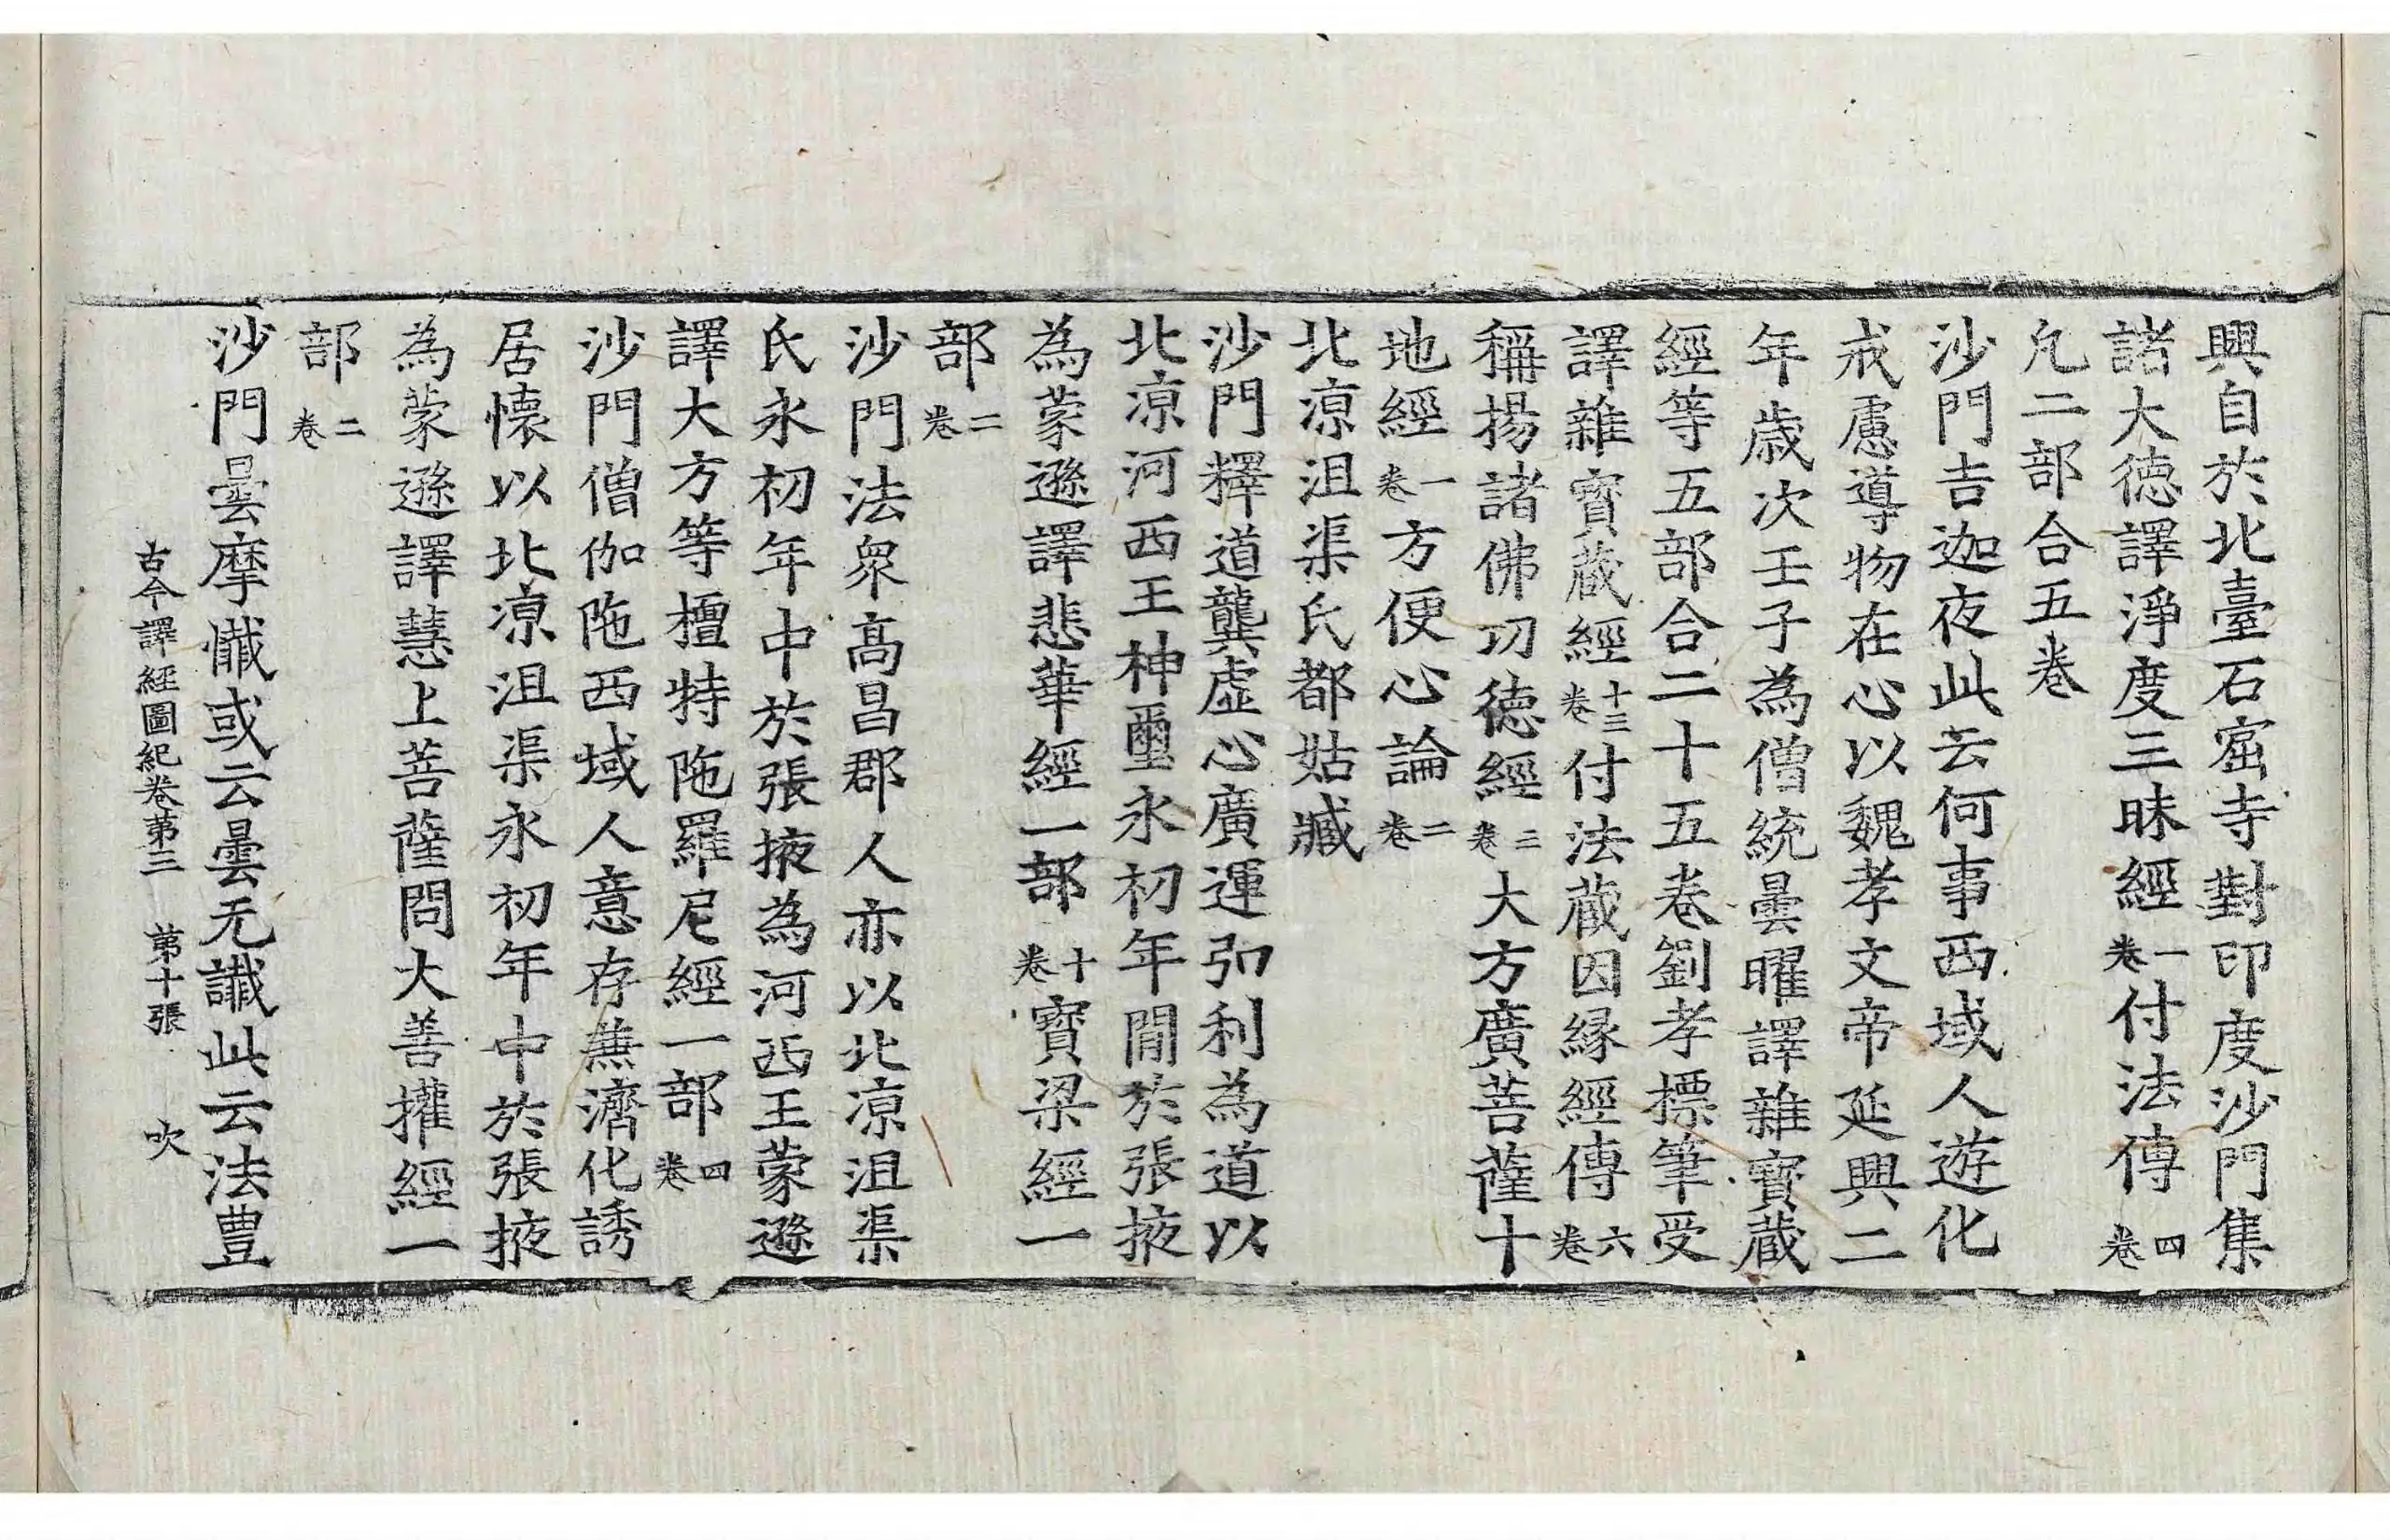 興自於北臺石窟寺對印度沙門集
諸大德譯淨度三昧經一卷付法傳四卷
凢二部合五卷
沙門吉迦夜此云何事西域人遊化
戒慮導物在心以魏孝文帝延興二
年歲次壬子為僧統曇曜譯雜寶蔵
經等五部合二十五卷劉孝摽筆受
譯雜寶蔵經十三卷付法蔵因縁經傳六卷
稱揚諸佛功德經三卷大方廣菩薩十
地經一卷方便心論二卷
北凉沮渠氏都姑臧
沙門釋道龔虛心廣運弘利為道以
北凉河西王神璽永初年間於張掖
為蒙遜譯悲華經一部十卷寶梁經一
部二卷
沙門法衆高昌郡人亦以北凉沮渠
氏永初年中於張掖為河西王蒙遜
譯大方等檀特陁羅尼經一部四卷
沙門僧伽陁西域人意存蕪濟化誘
居懐以北凉沮渠永初年中於張掖
為蒙遜譯慧上菩薩問大善攉經一
部二卷
沙門曇摩懴或云曇无讖此云法豊
古今譯經圖紀卷第三 第十張 吹